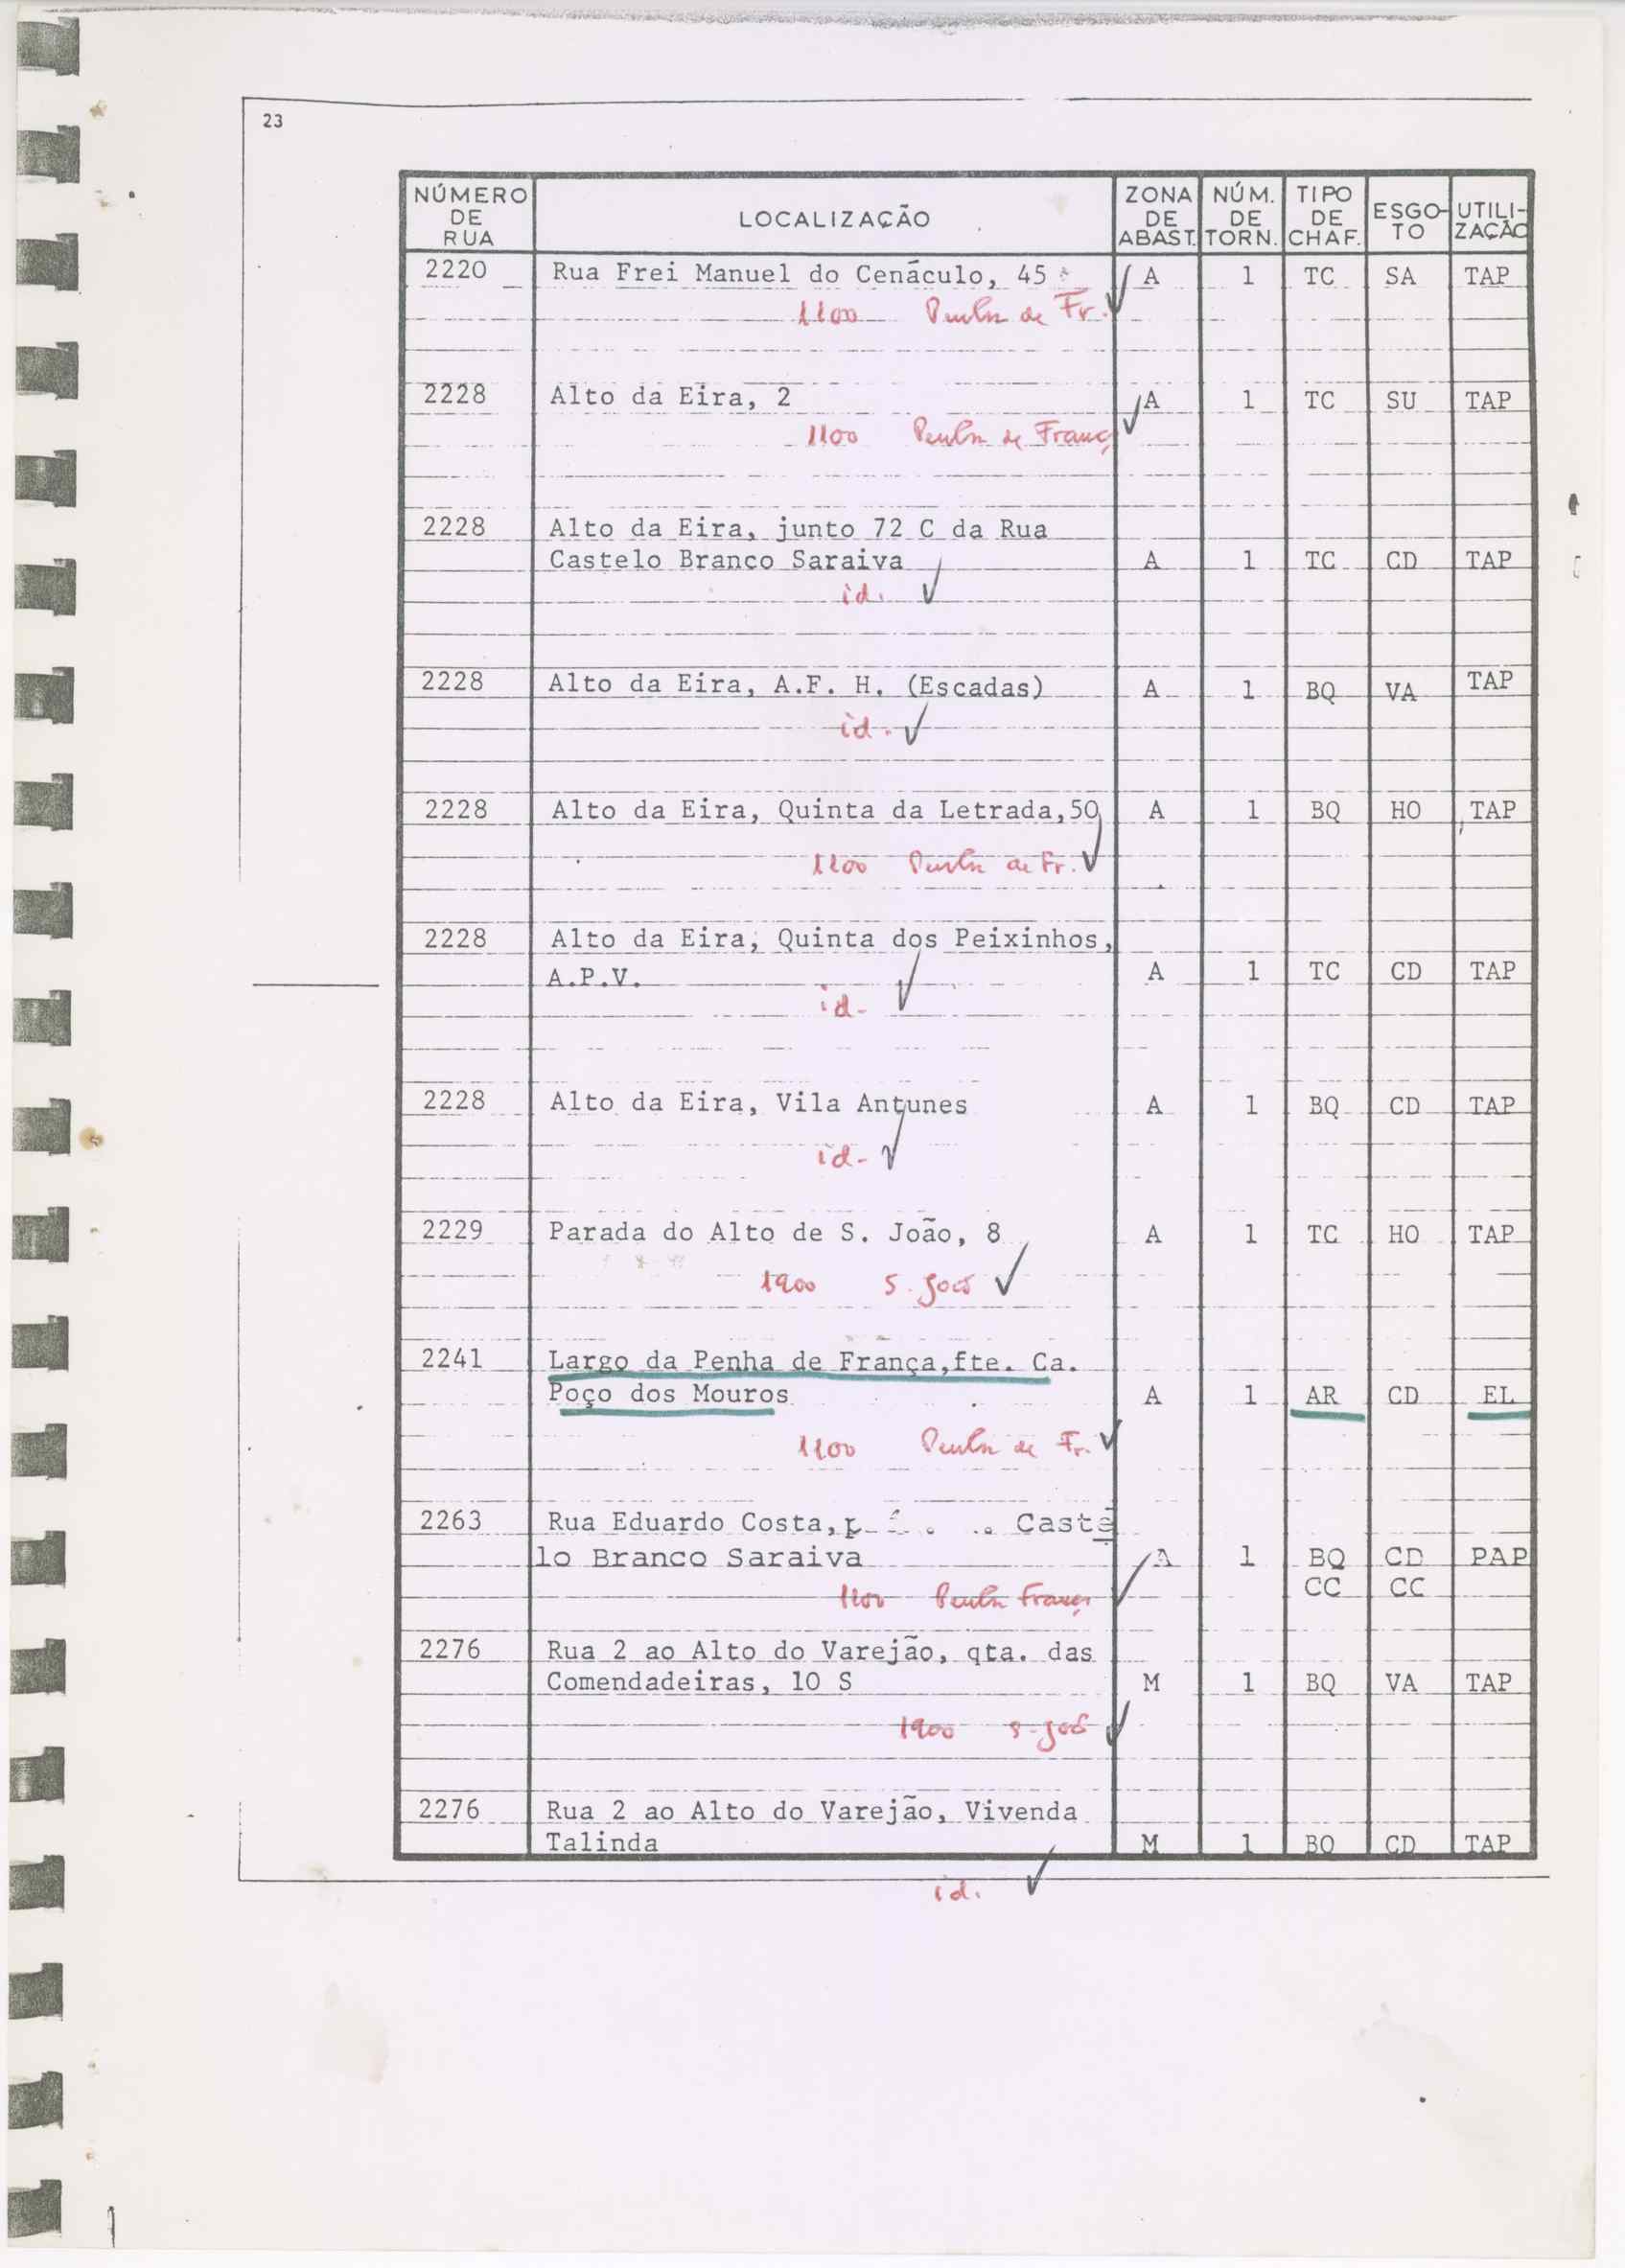 23
NÚMERO DE RUA LOCALIZAÇÃO ZONA DE ABAST. NÚM. DE TORN. TIPO DE CHAF. ESGO-TO UTILI-ZAÇÃO
2220 Rua Frei Manuel do Cenáculo, 45 A 1 TC SA TAP
1100 Penha de Fr.
2228 Alto da Eira, 2 A 1 TC SU TAP
1100 Penha de Franç
2228 Alto da Eira, junto 72 C da Rua
Castelo Branco Saraiva A 1 TC CD TAP
id.
2228 Alto da Eira, A.F. H. (Escadas) A 1 BQ VA TAP
id.
2228 Alto da Eira, Quinta da Letrada,50 A 1 BQ HO TAP
1100 Penha de Fr.
2228 Alto da Eira, Quinta dos Peixinhos,
A.P.V. A 1 TC CD TAP
id-
2228 Alto da Eira, Vila Antunes A 1 BQ CD TAP
id-
2229 Parada do Alto de S. João, 8 A 1 TC HO TAP
1900 S. João
2241 Largo da Penha de França,fte. Ca.
Poço dos Mouros A 1 AR CD EL
1100 Penha de Fr.
2263 Rua Eduardo Costa, Caste
lo Branco Saraiva A 1 BQ CD PAP
CC CC
1100 Penha França
2276 Rua 2 ao Alto do Varejão, qta. das
Comendadeiras, 10 S M 1 BQ VA TAP
1900 S. João
2276 Rua 2 ao Alto do Varejão, Vivenda
Talinda M 1 BQ CD TAP
id.